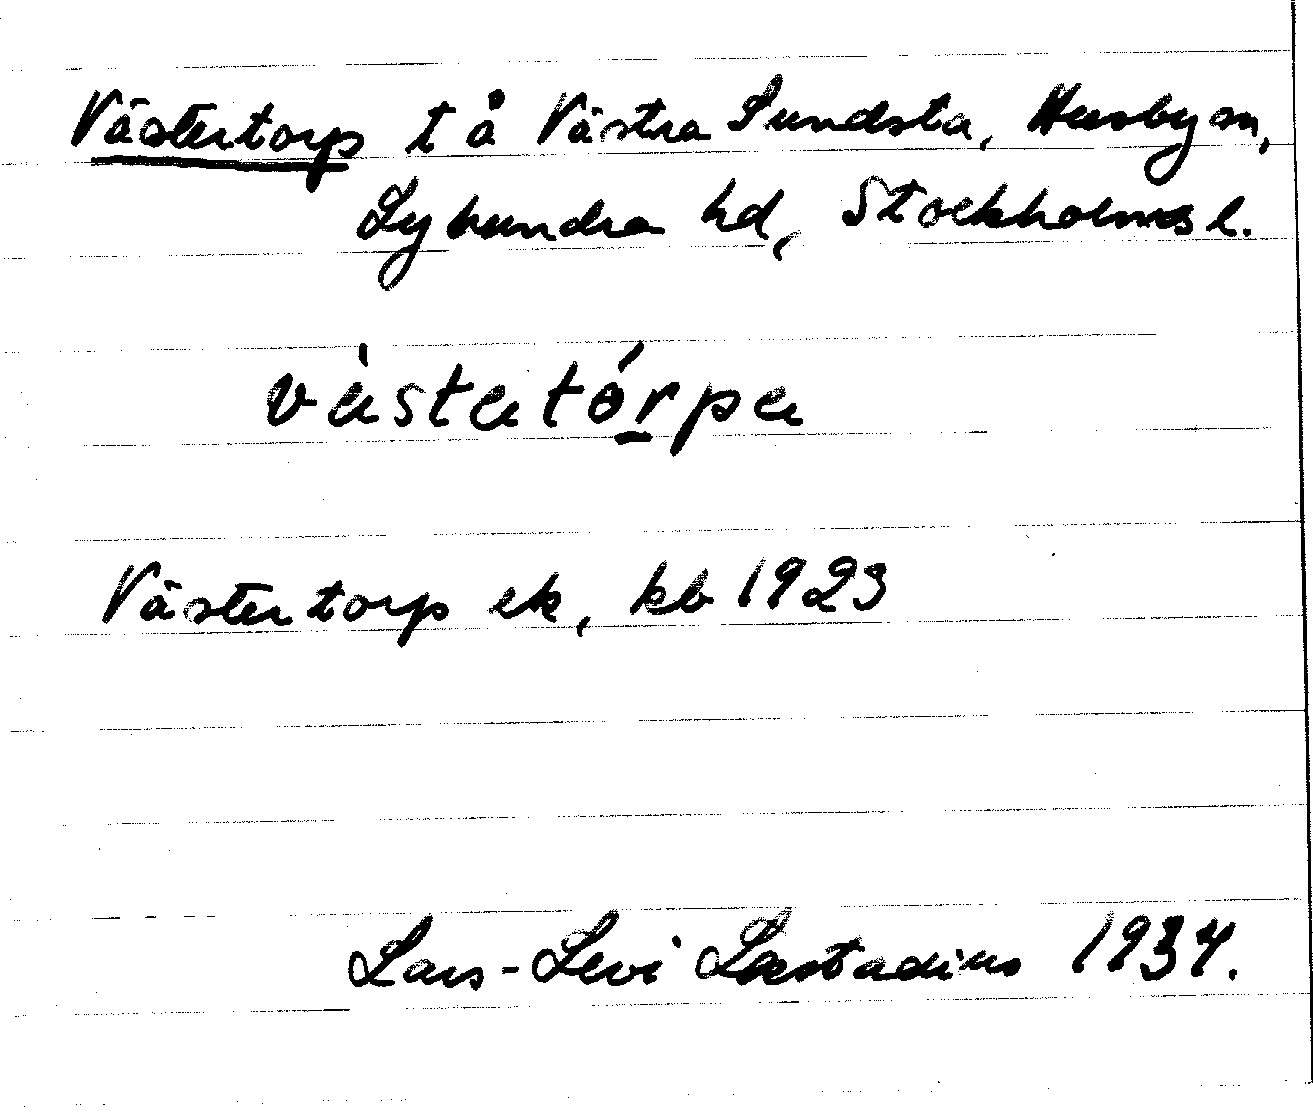 Västertorp t å Västra Sundsta, Husby sn,
Lyhundra hd, Stockholms l.
vàstatórpa
Västertorp ek, kb 1923
Lars-Levi Læstadius 1934.